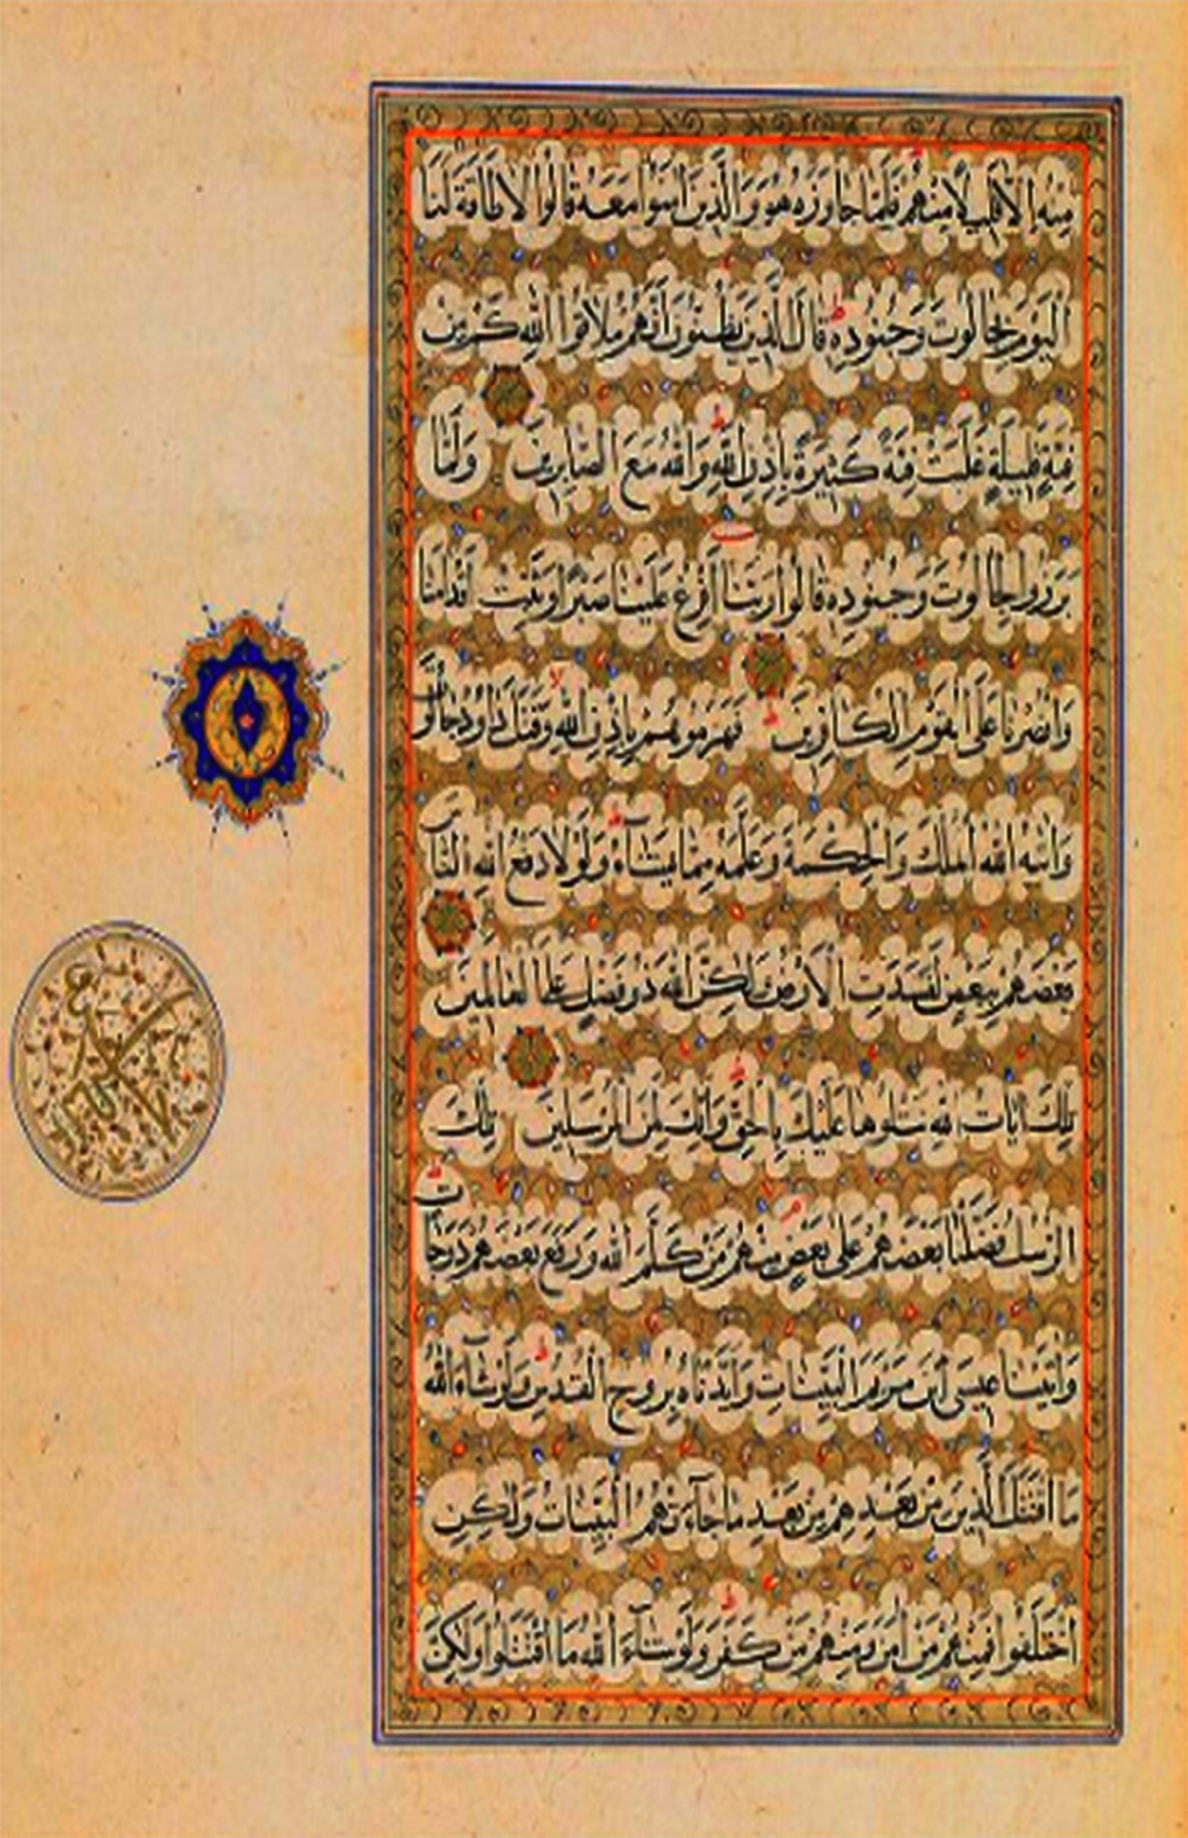 مِنْهُ إِلَّا قَلِيلًا مِنْهُمْ فَلَمَّا جَاوَزَهُ هُوَ وَالَّذِينَ آمَنُوا مَعَهُ قَالُوا لَا طَاقَةَ لَنَا
الْيَوْمَ بِجَالُوتَ وَجُنُودِهِ قَالَ الَّذِينَ يَظُنُّونَ أَنَّهُمْ مُلَاقُوا اللَّهِ كَمْ مِنْ
فِئَةٍ قَلِيلَةٍ غَلَبَتْ فِئَةً كَثِيرَةً بِإِذْنِ اللَّهِ وَاللَّهُ مَعَ الصَّابِرِينَ وَلَمَّا
بَرَزُوا لِجَالُوتَ وَجُنُودِهِ قَالُوا رَبَّنَا أَفْرِغْ عَلَيْنَا صَبْرًا وَثَبِّتْ أَقْدَامَنَا
وَانْصُرْنَا عَلَى الْقَوْمِ الْكَافِرِينَ فَهَزَمُوهُمْ بِإِذْنِ اللَّهِ وَقَتَلَ دَاوُدُ جَالُوتَ
وَآتَيهُ اللَّهُ الْمُلْكَ وَالْحِكْمَةَ وَعَلَّمَهُ مِمَّا يَشَاءُ وَلَوْلَا دَفْعُ اللَّهِ النَّاسَ
بَعْضَهُمْ بِبَعْضٍ لَفَسَدَتِ الْأَرْضُ وَلَكِنَّ اللَّهَ ذُو فَضْلٍ عَلَى الْعَالَمِينَ
تِلْكَ آيَاتُ اللَّهِ نَتْلُوهَا عَلَيْكَ بِالْحَقِّ وَإِنَّكَ لَمِنَ الْمُرْسَلِينَ تِلْكَ
الرُّسُلُ فَضَّلْنَا بَعْضَهُمْ عَلَى بَعْضٍ مِنْهُمْ مَنْ كَلَّمَ اللَّهُ وَرَفَعَ بَعْضَهُمْ دَرَجَاتٍ
وَآتَيْنَا عِيسَى ابْنَ مَرْيَمَ الْبَيِّنَاتِ وَأَيَّدْنَاهُ بِرُوحِ الْقُدُسِ وَلَوْ شَاءَ اللَّهُ
مَا اقْتَتَلَ الَّذِينَ مِنْ بَعْدِهِمْ مِنْ بَعْدِ مَا جَاءَتْهُمُ الْبَيِّنَاتُ وَلَكِنِ
اخْتَلَفُوا فَمِنْهُمْ مَنْ آمَنَ وَمِنْهُمْ مَنْ كَفَرَ وَلَوْ شَاءَ اللَّهُ مَا اقْتَتَلُوا وَلَكِنَّ